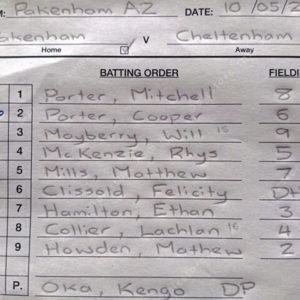 M: Pakenham AZ DATE: 10/05/2
akenham V Cheltenham
Home Away
BATTING ORDER FIELDI
1 Porter, Mitchell 8
2 Porter, Cooper 6
3 Mayberry, Will 15 9
4 McKenzie, Rhys 5
5 Mills, Matthew 7
6 Clissold, Felicity DH
7 Hamilton, Ethan 3
8 Collier, Lachlan 16 4
9 Howden, Mathew 2
P. Oka, Kengo DP